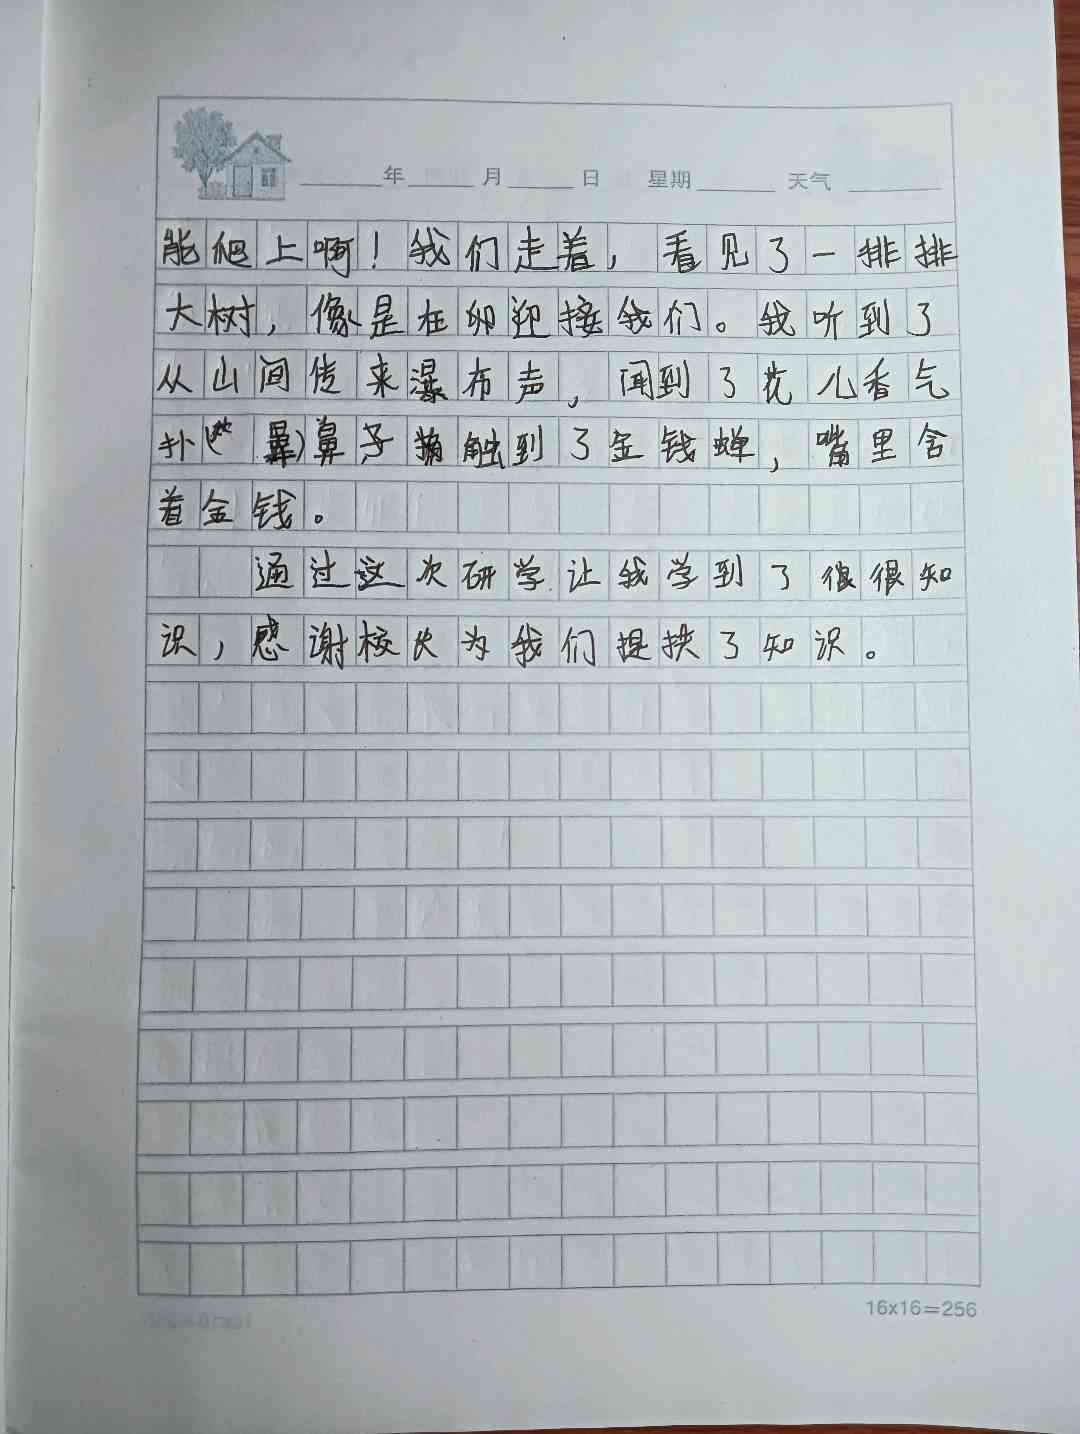 年 月 日 星期 天气
能爬上啊！我们走着，看见了一排排
大树，像是在迎接我们。我听到了
从山间传来瀑布声，闻到了花儿香气
扑鼻子 触到了金钱蝉，嘴里含
着金钱。
通过这次研学让我学到了很很知
识，感谢校长为我们提拱了知识。
16x16=256